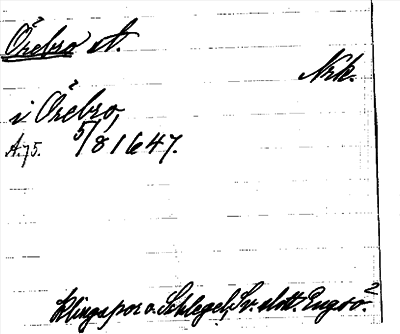 Örebro A.
Nrk.
i Örebro,
A.75. 5/8 1647.
Klingspor o. Schlegel, Sv. slott. Engsö.²